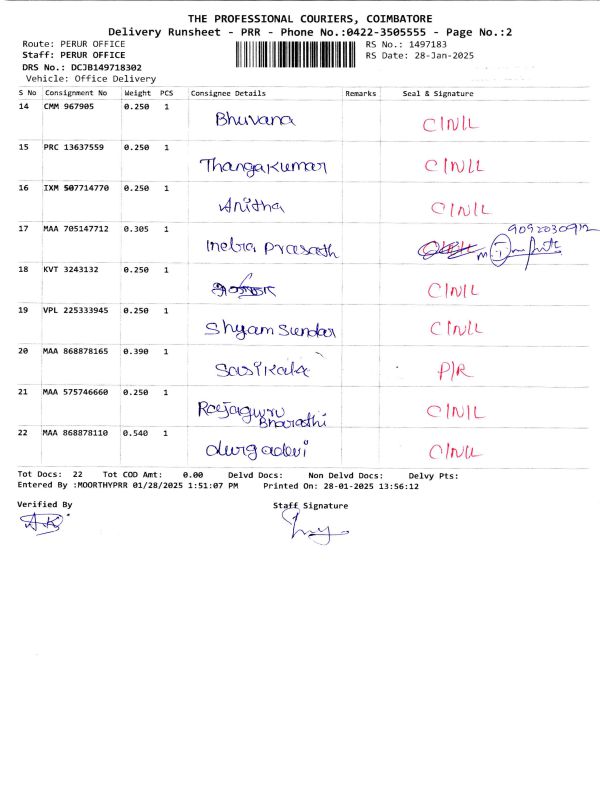 THE PROFESSIONAL COURIERS, COIMBATORE
Delivery Runsheet - PRR - Phone No.:0422-3505555 - Page No.:2
Route: PERUR OFFICE
Staff: PERUR OFFICE
DRS No.: DCJB149718302
Vehicle: Office Delivery
RS No.: 1497183
RS Date: 28-Jan-2025
S No Consignment No Weight PCS Consignee Details Remarks Seal & Signature
14 CMM 967905 0.250 1 Bhuvana C/N/L
15 PRC 13637559 0.250 1 Thangakumar C/N/L
16 IXM 507714770 0.250 1 Anitha C/N/L
17 MAA 705147712 0.305 1 Prasath
18 KVT 3243132 0.250 1 C/N/L
19 VPL 225333945 0.250 1 Shyam Sundar C/N/L
20 MAA 868878165 0.390 1 Sasikala P/R
21 MAA 575746660 0.250 1 Raejaguru Bharathi C/N/L
22 MAA 868878110 0.540 1 durgadevi C/N/L
Tot Docs: 22 Tot COD Amt: 0.00 Delvd Docs: Non Delvd Docs: Delvy Pts:
Entered By :MOORTHYPRR 01/28/2025 1:51:07 PM Printed On: 28-01-2025 13:56:12
Verified By Staff Signature